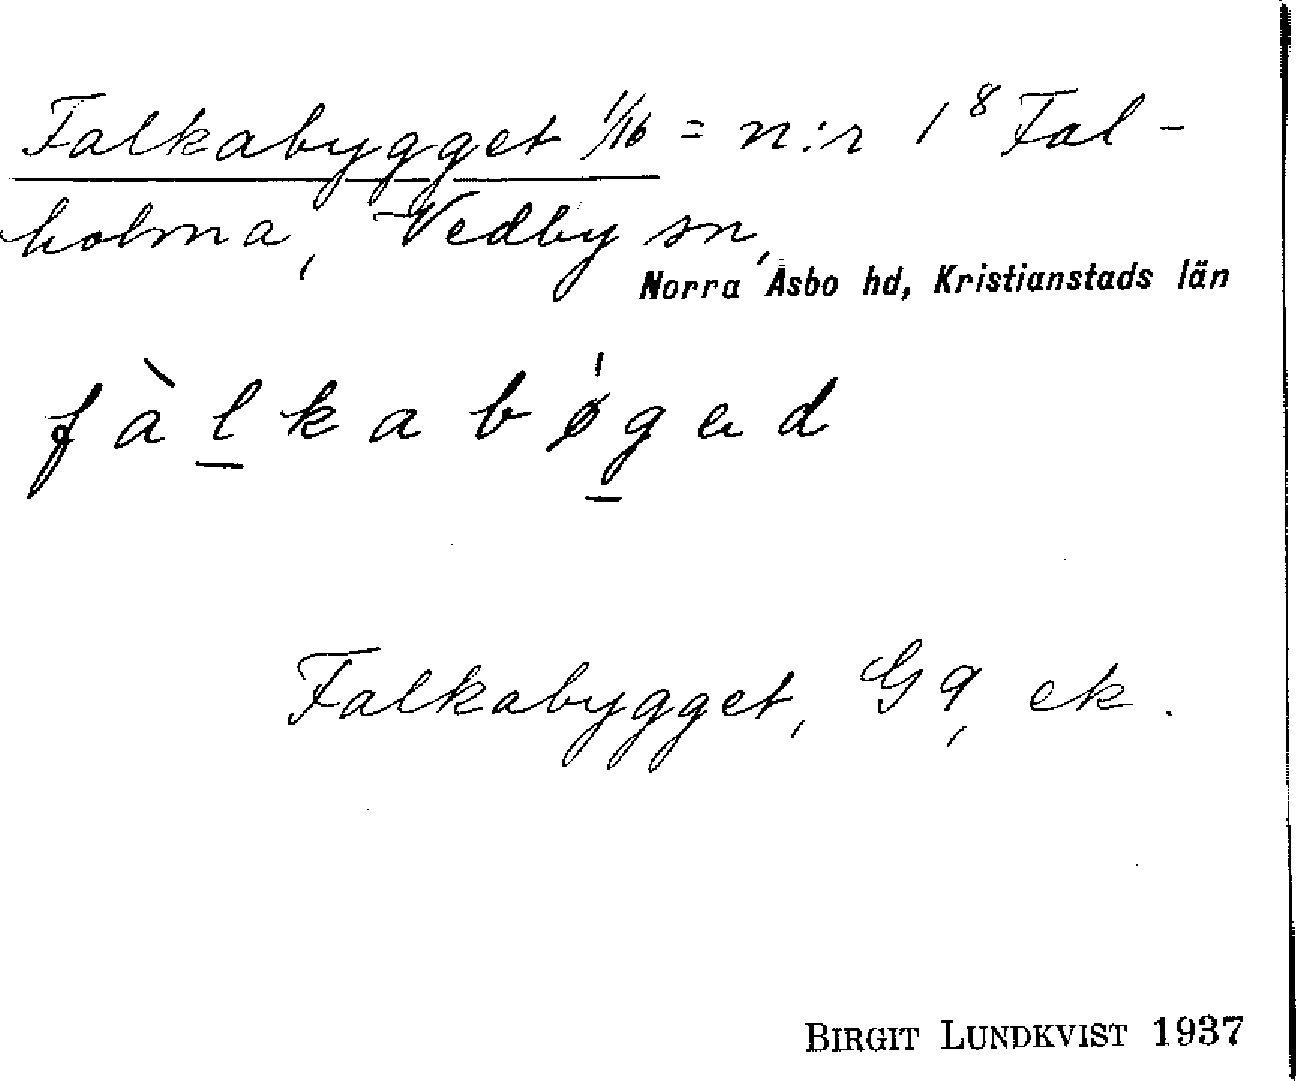 Falkabygget 1/16 = n:r 1⁸ Fal-
holma, Vedby sn,
Norra Åsbo hd, Kristianstads län
fàlkabøgəd
Falkabygget, G9, ek.
BIRGIT LUNDKVIST 1937